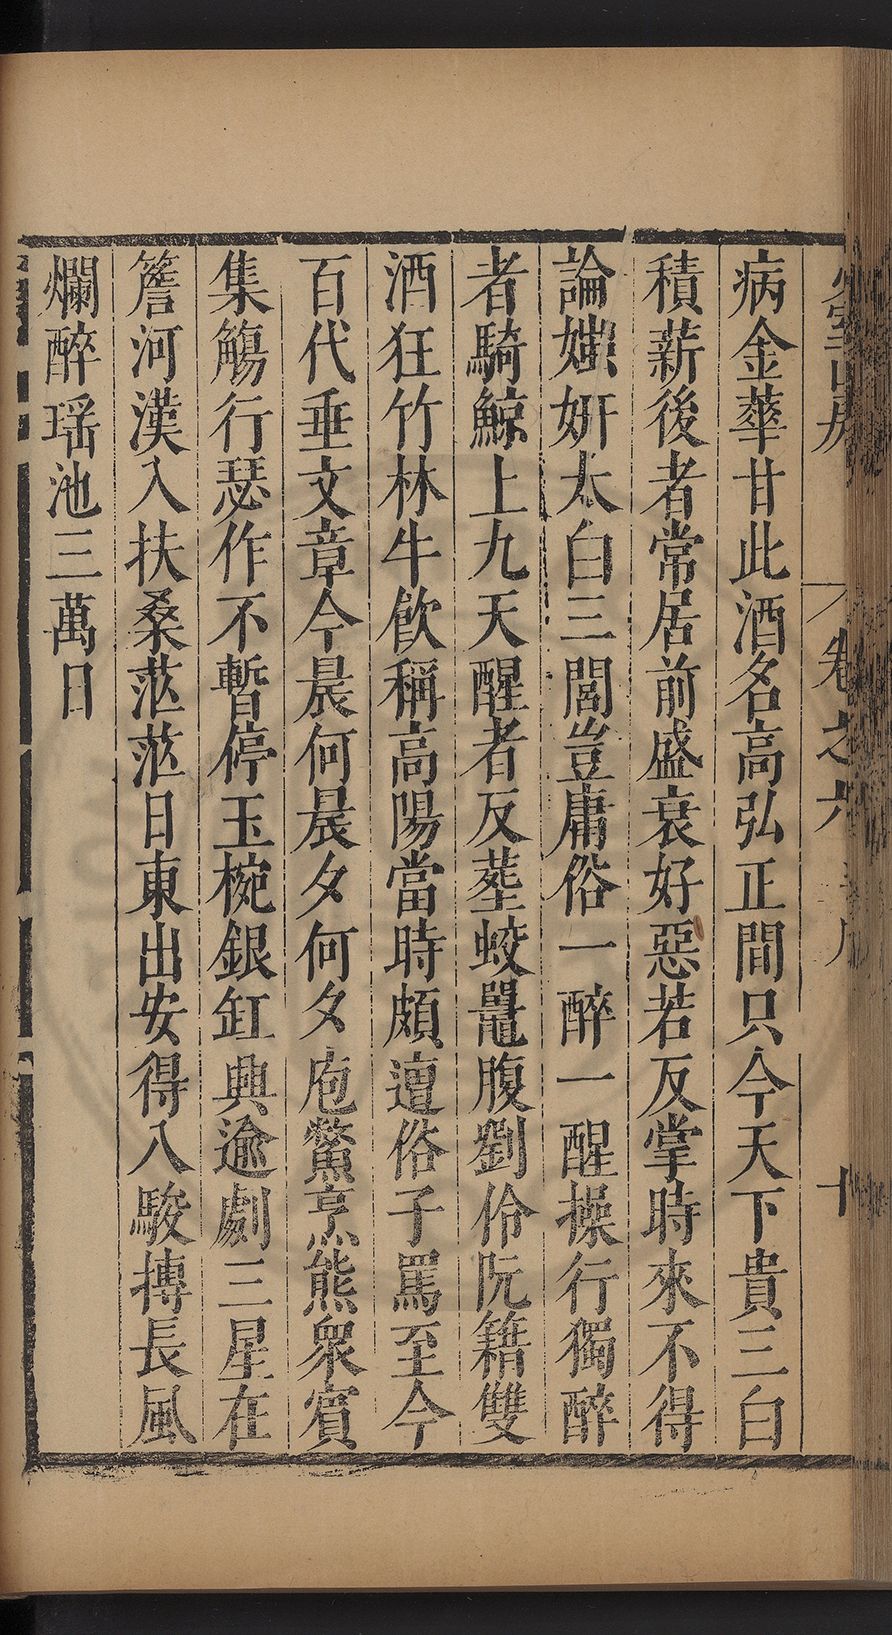 病金華甘此酒名高弘正間只今天下貴三白
積薪後者常居前盛衰好惡若反掌時來不得
論媸妍太白三閭豈庸俗一醉一醒操行獨醉
者騎鯨上九天醒者反葬蛟鼉腹劉伶阮籍雙
酒狂竹林牛飲稱高陽當時頗遭俗子罵至今
百代垂文章今晨何晨夕何夕庖鱉烹熊衆賓
集觴行瑟作不暫停玉椀銀缸興逾劇三星在
簷河漢入扶桑茫茫日東出安得八駿摶長風
爛醉瑶池三萬日
卷之六
十